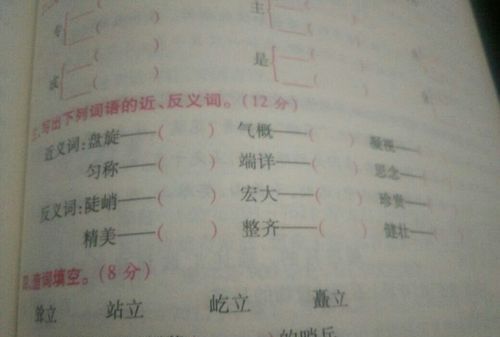 主
专( )
( )
是( )
或( )
( )
三、写出下列词语的近、反义词。(12分)
近义词:盘旋——( ) 气概——( ) 凝视——
匀称——( ) 端详——( ) 思念——(
反义词:陡峭——( ) 宏大——( ) 珍贵——(
精美——( ) 整齐——( ) 健壮——(
四、选词填空。(8分)
耸立 站立 屹立 矗立
的哨兵